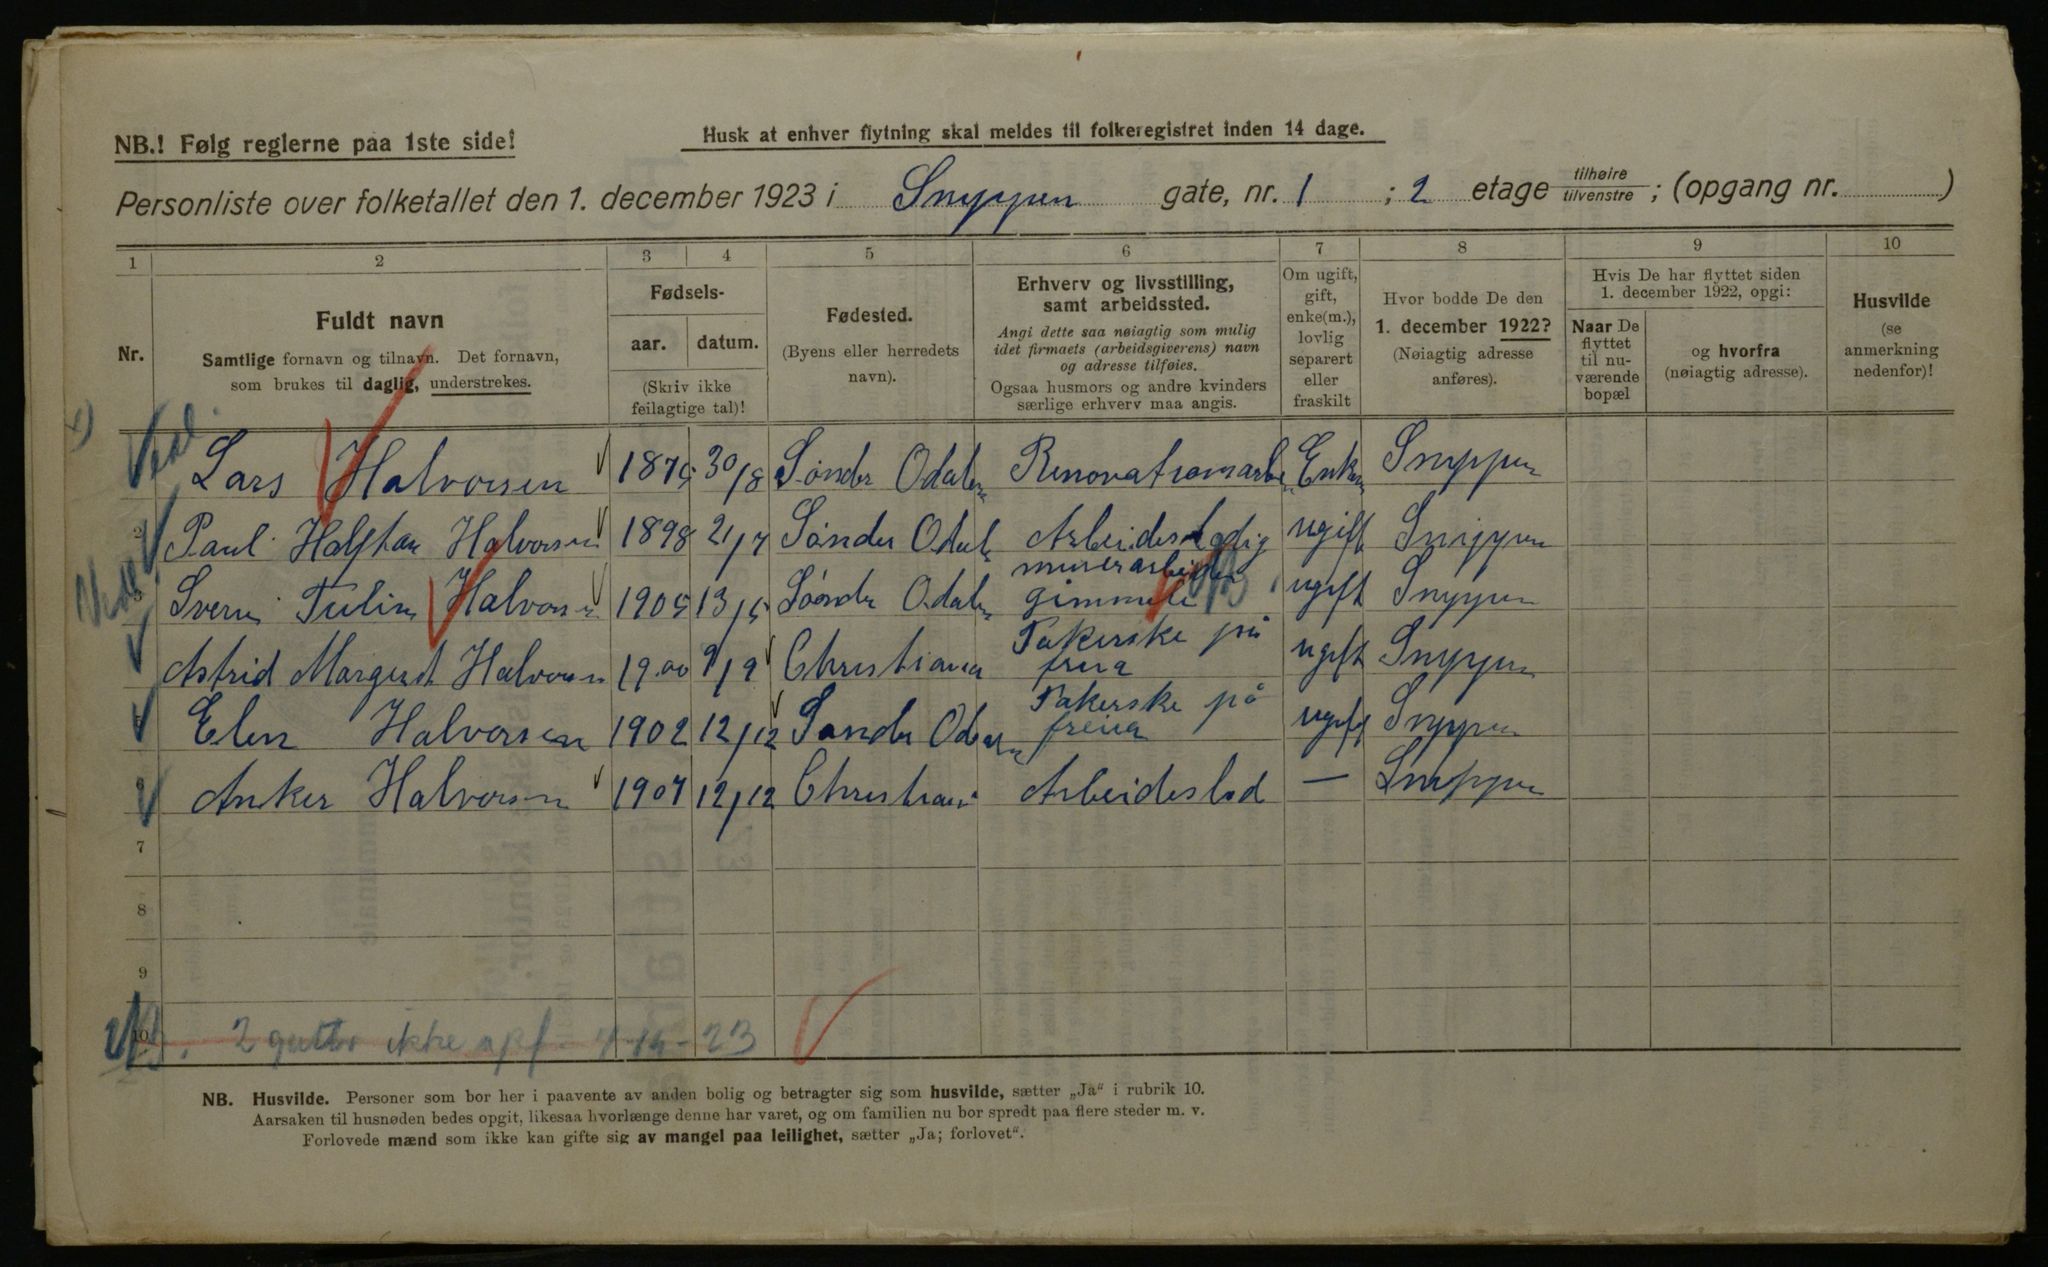 NB.! Følg reglerne paa 1ste side!
Husk at enhver flytning skal meldes til folkeregistret inden 14 dage.
Personliste over folketallet den 1. december 1923 i Snyppen gate, nr. 1 ; 2 etage tilhøire tilvenstre ; (opgang nr. )
1 2 3 4 5 6 7 8 9 10
Nr.
Fuldt navn
Samtlige fornavn og tilnavn. Det fornavn,
som brukes til daglig, understrekes.
Fødsels-
aar. datum.
(Skriv ikke
feilagtige tal)!
Fødested.
(Byens eller herredets
navn).
Erhverv og livsstilling,
samt arbeidssted.
Angi dette saa nøiagtig som mulig
idet firmaets (arbeidsgiverens) navn
og adresse tilføies.
Ogsaa husmors og andre kvinders
særlige erhverv maa angis.
Om ugift,
gift,
enke(m.),
lovlig
separert
eller
fraskilt
Hvor bodde De den
1. december 1922?
(Nøiagtig adresse
anføres).
Hvis De har flyttet siden
1. december 1922, opgi:
Naar De
flyttet
til nu-
værende
bopæl
og hvorfra
(nøiagtig adresse).
Husvilde
(se
anmerkning
nedenfor)!
Lars Halvorsen 1875 30/8 Sønder Odalen Renovationsarbe Enkem Snyppen
2 Paul Halfdan Halvorsen 1898 21/7 Sønder Odalen Arbeidsledig ugift Snyppen
3 Sverre Halvorsen 1905 13/5 Sønder Odalen murerarbeider
gimmele ugift Snyppen
Astrid Margredt Halvorsen 1900 9/9 Christiania Pakerske på
freia ugift Snyppen
5 Elen Halvorsen 1902 12/12 Sønder Odalen Pakerske på
freia ugift Snyppen
6 Anker Halvorsen 1907 12/12 Christiania Arbeidsled — Snyppen
7
8
9
10 2 gutter ikke opf. 23
NB. Husvilde. Personer som bor her i paavente av anden bolig og betragter sig som husvilde, sætter „Ja“ i rubrik 10.
Aarsaken til husnøden bedes opgit, likesaa hvorlænge denne har varet, og om familien nu bor spredt paa flere steder m. v.
Forlovede mænd som ikke kan gifte sig av mangel paa leilighet, sætter „Ja; forlovet“.